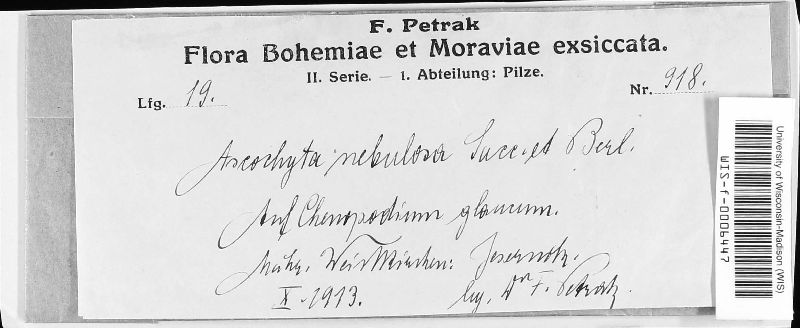 F. Petrak
Flora Bohemiae et Moraviae exsiccata.
II. Serie. — 1. Abteilung: Pilze.
Lfg. 19. Nr. 918.
Ascochyta nebulosa Sacc. et Berl.
Auf Chenopodium glaucum.
Mähr. Weisskirchen: Jesernik.
X. 1913. leg. Dr F. Petrak.
University of Wisconsin-Madison (WIS)
WIS-f-0006447